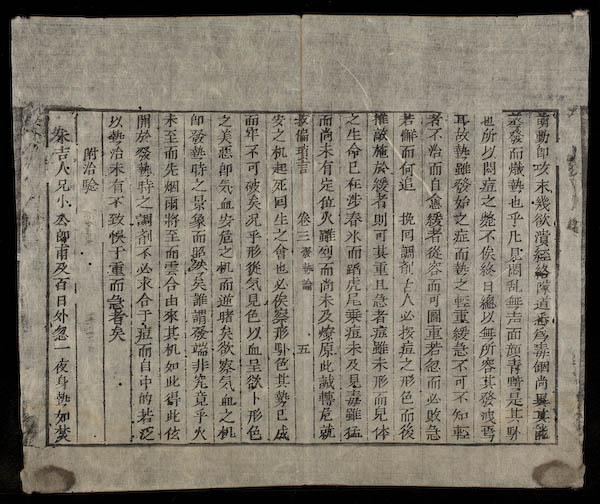 萌動即攻未幾欲潰經絡隧道悉為毒錮尚冀其能
蒸發而熾熱也乎凡見悶亂無声面顏青黯是其卧
也所以悶痘之斃不俟終日總以無所容其發洩焉
耳故熱雖發始之症而熱之輕重緩急不可不知輕
者不治而自愈緩者從容而可圖重若忽而必敗急
若懈而何追 挽囘調剤十人必按痘之形色而後
推敵施於緩者則可其重且急者痘雖未形而見体
之生命已在涉春氷而蹈虎尾乗痘未及見毒雖猛
而尚未有定位火雖烈而尚未及燎原此誠轉危就
救偏瑣言 卷三 發熱論 五
安之机起死囘生之會也必俟察形卟色其勢已成
而牢不可破矣况乎形從気見色以血呈欲卜形色
之美惡卽気血安危之机而逆睹矣欲察気血之机
卽發熱時之景象而昭然矣雖謂發端非完竟乎火
未至而先烟雨將至而雲合由來其机如此得此佐
關於發熱時之調剤不必求合于痘而自中的若泛
以熱治未有不致悞于重而急者矣
附治驗
朱吉人兄小公郎甫及百日外忽一夜身熱如焚